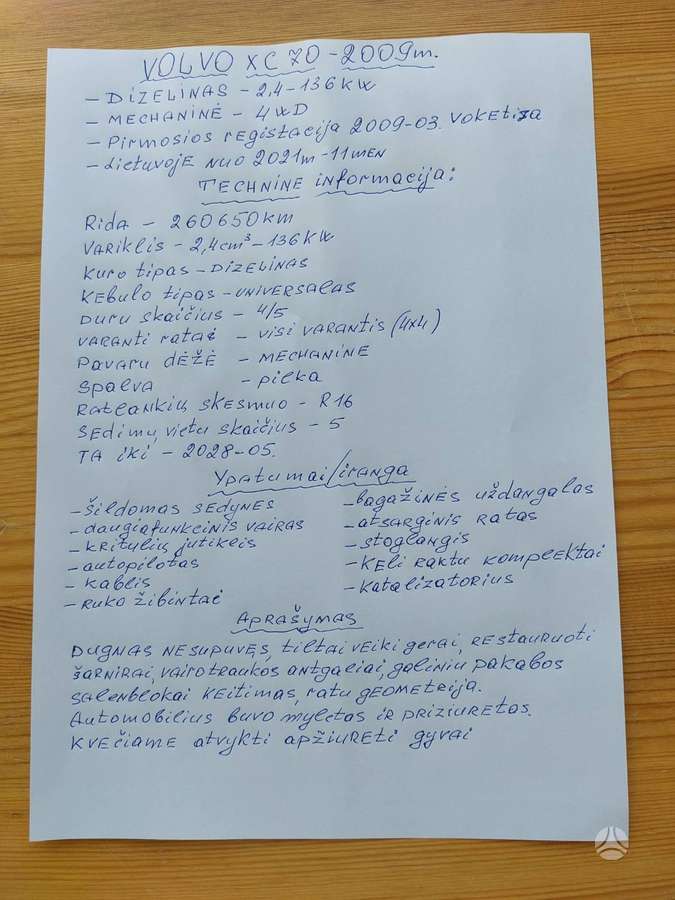 VOLVO XC 70 - 2009m.
- DIZELINAS - 2,4 - 136 KW
- MECHANINĖ - 4WD
- PIRMOSIOS REGISTACIJA 2009-03. VOKETIJA
- LIETUVOJE NUO 2021m - 11 MEN
TECHNINE informacija:
Rida - 260650 KM
VARIKLIS - 2,4 cm³ - 136 KW
KURO tipas - DIZELINAS
KEBULO tipas - UNIVERSALAS
DURU SKAIČIUS - 4/5
VARANTI RATAI - VISI VARANTIS (4x4)
PAVARU DĖŽĖ - MECHANINE
SPALVA - PILKA
RATLANKIŲ SKESMUO - R16
SEDIMŲ VIETU SKAIČIUS - 5
TA IKI - 2028-05.
Ypatumai/iranga
- ŠILDOMAS SEDYNES
- DAUGIAFUNKCINIS VAIRAS
- KRITULIŲ JUTIKLIS
- AUTOPILOTAS
- KABLIS
- RUKO ŽIBINTAI
- BAGAŽINĖS UŽDANGALAS
- ATSARGINIS RATAS
- STOGLANGIS
- KELI RAKTU KOMPLEKTAI
- KATALIZATORIUS
APRAŠYMAS
DUGNAS NESUPUVĘS, TILTAI VEIKI GERAI, RESTAURUOTI
ŠARNIRAI, VAIROTRAUKOS ANTGALIAI, GALINIU PAKABOS
SALENBLOKAI KEITIMAS, RATU GEOMETRIJA.
AUTOMOBILIUS BUVO MYLĖTAS IR PRIZIURETAS.
KVEČIAME ATVYKTI APŽIURETI GYVAI